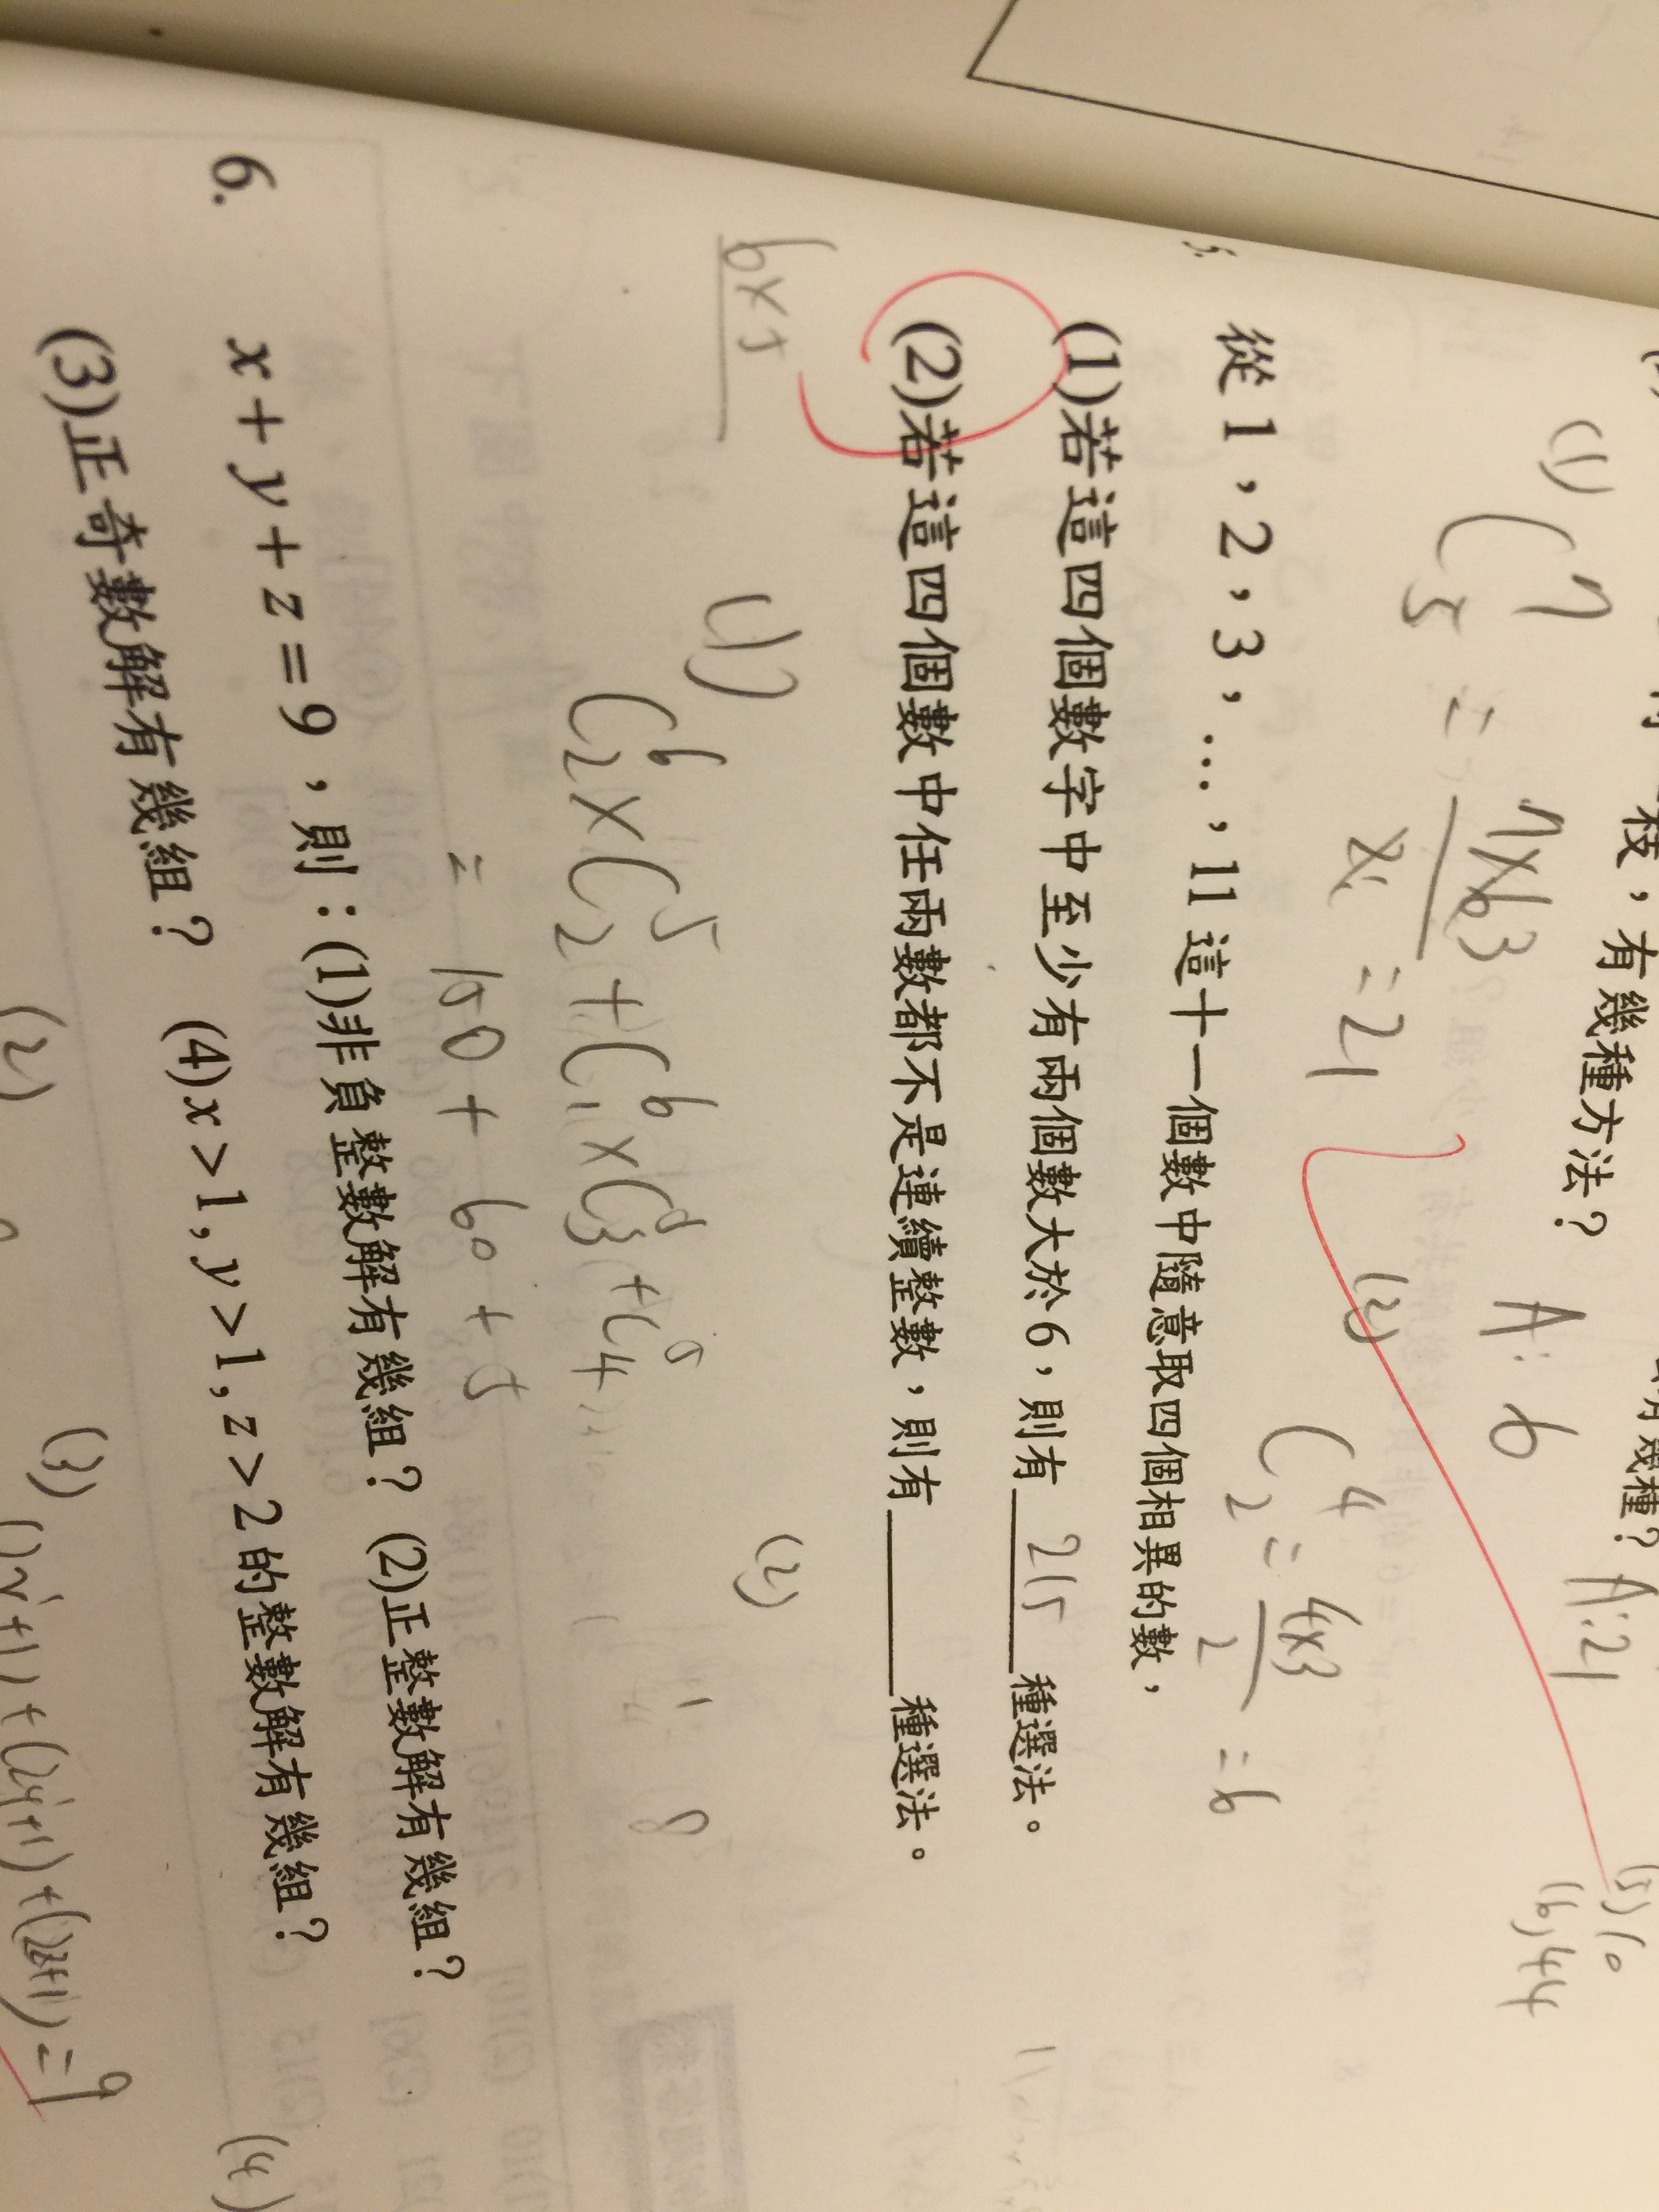 枝,有幾種方法?
(1) C 7 5 = 7×6 3 / 2 = 21
A: 6
A: 21
(2) C 4 2 = 4×3 / 2 = 6
(5) 10
(6) 44
5. 從 1 , 2 , 3 , … , 11 這十一個數中隨意取四個相異的數,
(1)若這四個數字中至少有兩個數大於 6,則有 215 種選法。
(2)若這四個數中任兩數都不是連續整數,則有______種選法。
6×5
(1) C 6 2 × C 5 2 + C 6 1 × C 5 3 + C 5 4
= 150 + 60 + 5
(2)
6. x + y + z = 9 , 則:(1)非負整數解有幾組? (2)正整數解有幾組?
(3)正奇數解有幾組? (4) x > 1 , y > 1 , z > 2 的整數解有幾組?
(2)
(3) (2x'+1)+(2y'+1)+(2z'+1)=9
(4)